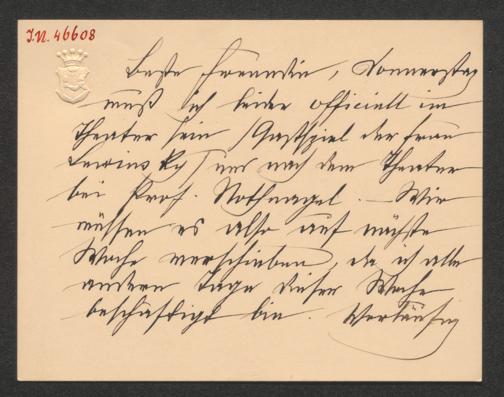 I.N. 46608
Beste Freundin, Donnerstag
muß ich leider officiell im
Theater sein (Gastspiel der Frau
Lewinsky) und nach dem Theater
bei Prof. Nothnagel. – Wir
müssen es also auf nächste
Woche verschieben, da ich alle
andern Tage dieser Woche
beschäftigt bin. Vorläufig